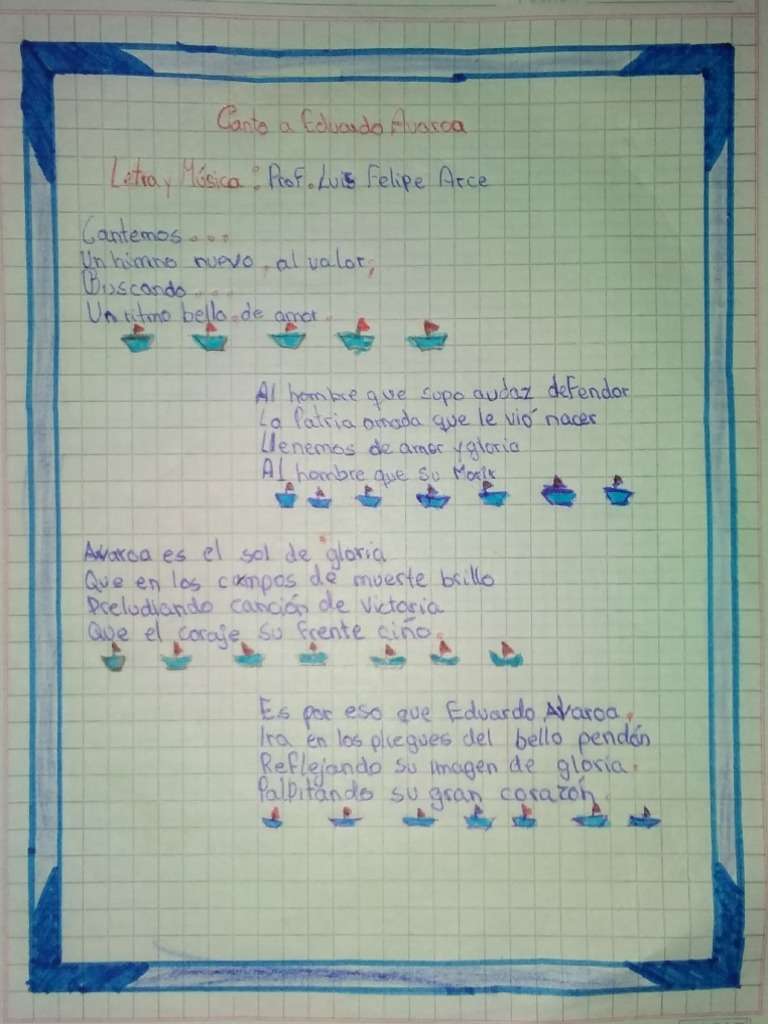 Canto a Eduardo Avaroa
Letra y Música: Prof. Luis Felipe Arce
Cantemos...
Un himno nuevo, al valor,
Buscando...
Un ritmo bello de amor.
Al hombre que supo audaz defendor
La Patria amada que le vió nacer
Llenemos de amor y gloria
Al hombre que su Morir
Avaroa es el sol de gloria
Que en los campos de muerte brillo
Preludiando canción de victoria
Que el coraje su frente ciño.
Es por eso que Eduardo Avaroa,
Ira en los pliegues del bello pendón
Reflejando su imagen de gloria.
Palpitando su gran corazón.